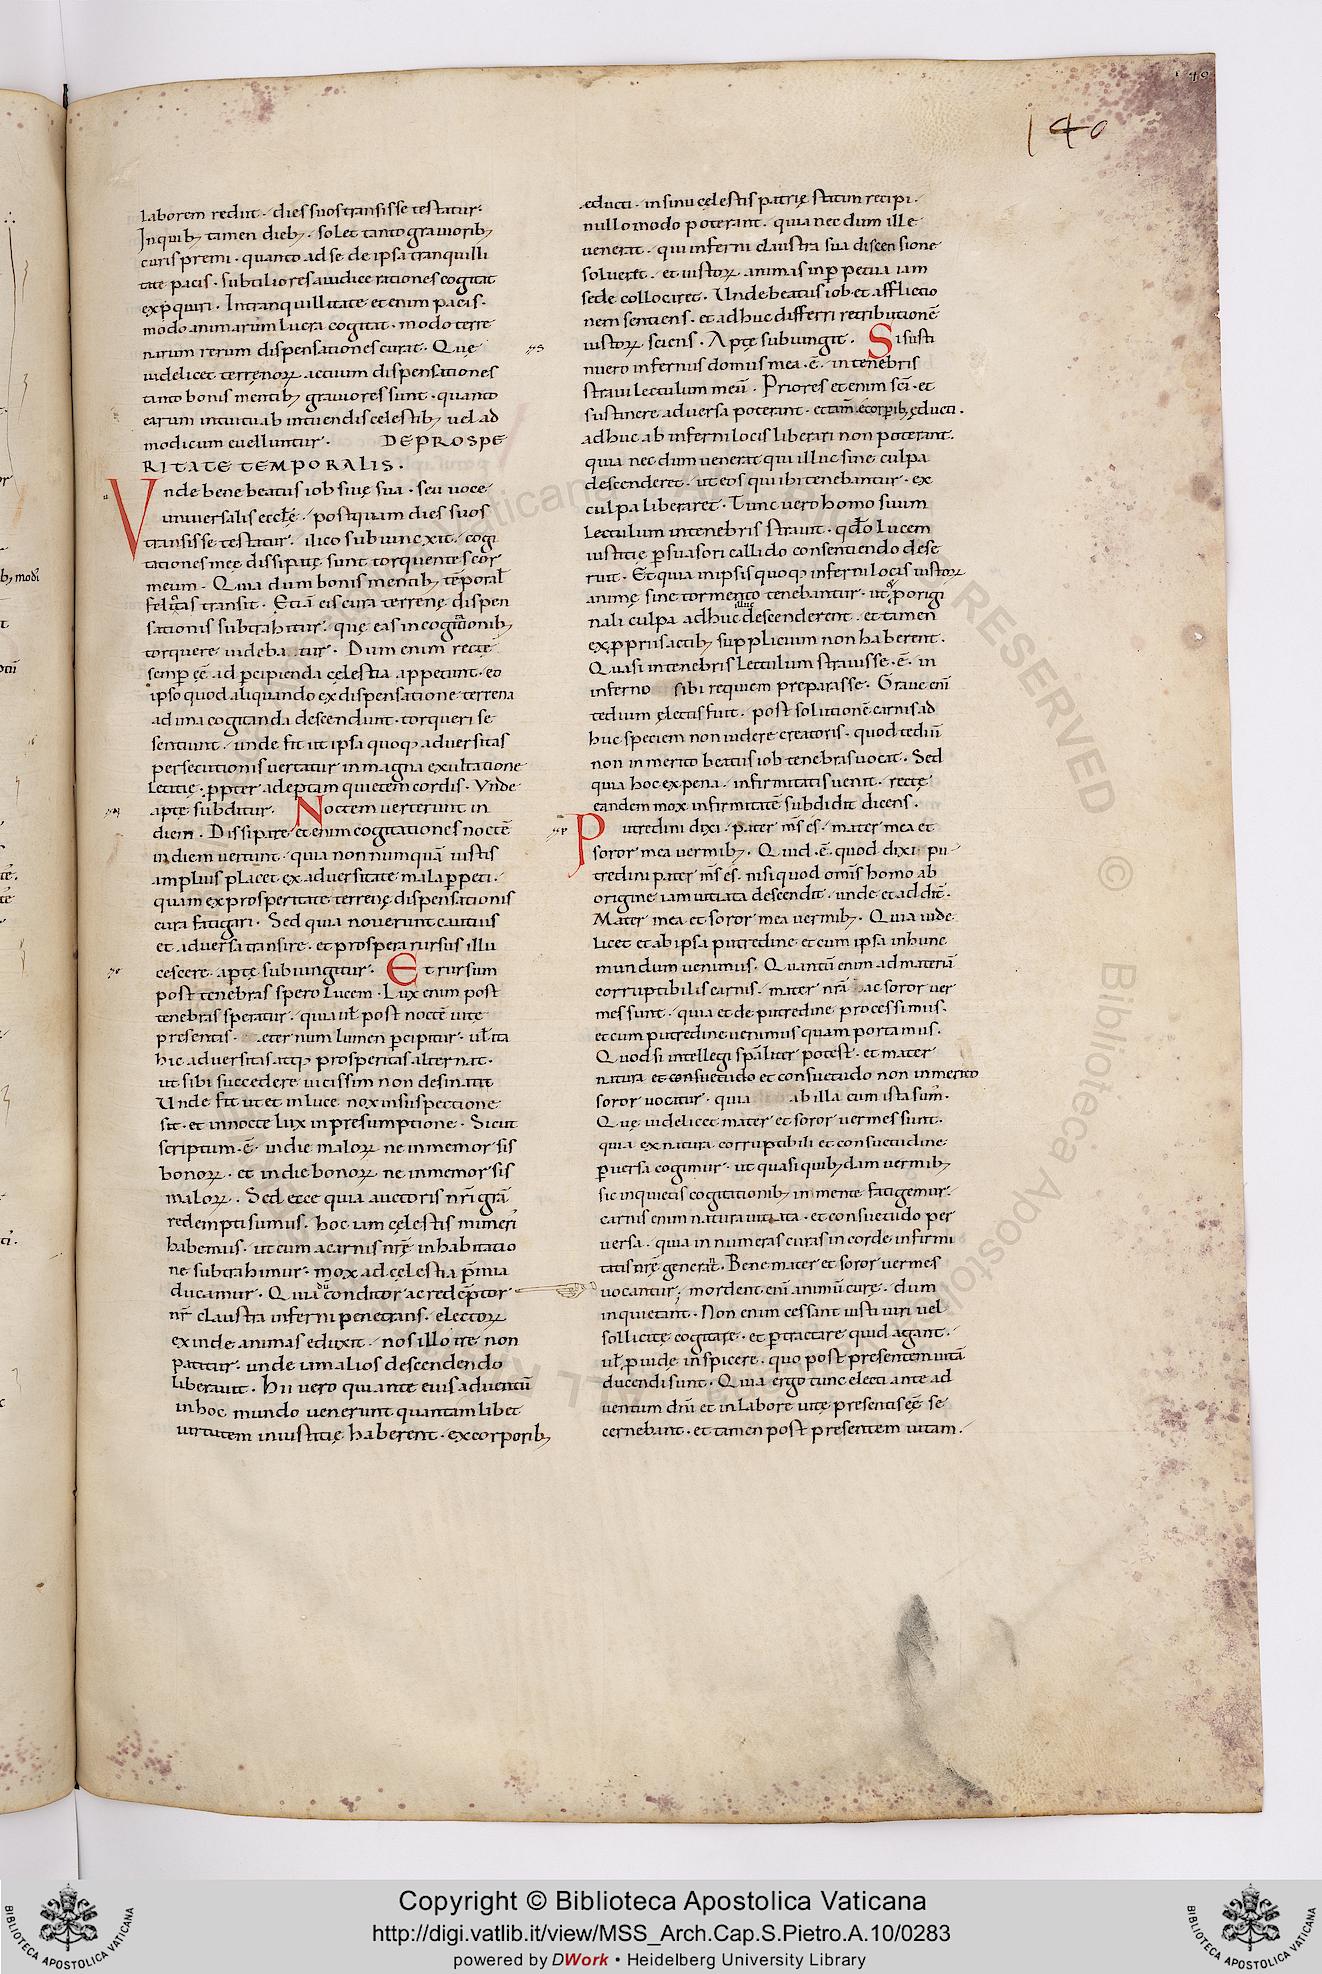 140
laborem rediit · dies suos transisse testatur ·
Inquib; tamen dieb; · solet tanto grauiorib;
curis premi · quanto ad se de ipsa tranquilli
tate pacis · subtiliores a iudice rationes cogitat
exp̱quiri · In tranquillitate etenim pacis ·
modo animarum lucra cogitat · modo terre
narum rerum dispensationes curat · Quę
uidelicet terrenoꝝ actuum dispensationes
tanto bonis mentib; grauiores sunt · quanto
earum intuitu ab intuendis celestib; uel ad
modicum euelluntur · DE PROSPE
RITATE TEMPORALIS ·
Vnde bene beatus iob siuę sua · seu uoce
uniuersalis ecclę · postquam dies suos
transisse testatur · ilico subiunxit · cogi
tationes meę dissipatę sunt torquentes cor
meum · Quia dum bonis mentib; tēporał
felicitas transit · Etiā eis cura terrenę dispen
sationis subtrahitur · quę eas in cogitationib;
torquere uideba tur · Dum enim rectę
semꝑ eē ad ꝑcipienda cęlestia appetunt · eo
ipso quod aliquando ex dispensatione terrena
ad ima cogitanda descendunt · torqueri se
sentiunt · unde fit ut ipsa quoq; aduersitas
persecutionis uertatur in magna exultatione
letitię · ꝓpter adeptam quietem cordis · Vnde
aptę subditur · Noctem uerterunt in
diem · Dissipatę etenim cogitationes noctē
in diem uertunt · quia non numquā iustis
amplius placet ex aduersitate mala ꝑpeti ·
quam ex prosperitate terrenę dispensationis
cura fatigari · Sed quia nouerunt cautius
et aduersa transire · et prospera rursus illu
cescere · aptę subiungitur · Et rursum
post tenebras spero lucem · Lux enim post
tenebras speratur · quia uł post noctē uitę
presentis · eternum lumen ꝑcipitur · uł ita
hic aduersitas atq; prosperitas alternat ·
ut sibi succedere uicissim non desinant
Unde fit ut et in luce nox in suspectione
sit · et in nocte lux in presumptione · Sicut
scriptum · ē · in die maloꝝ ne inmemor sis
bonoꝝ · et in die bonoꝝ ne inmemor sis
maloꝝ · Sed ecce quia auctoris nr̄i gr̄a
redempti sumus · hoc iam cęlestis muneri'
habemus · ut cum a carnis nrę̄ inhabitatio
ne subtrahimur · mox ad cęlestia p̄mia
ducamur · Quia dū conditor ac redēptor
nr̄ claustra inferni penetrans · electoꝝ
exinde animas eduxit · nos illo ire non
patitur · unde iam alios descendendo
liberauit · Hii vero qui ante eius aduentū
in hoc mundo uenerunt quantam libet
uirtutem iniustitię haberent · ex corporib;
educti · in sinu cęlestis patrię statim recipi ·
nullo modo poterant · quia nec dum ille
uenerat · qui inferni claustra sua discensione
solueret · et iustoꝝ animas in ꝑpetua iam
sede collocaret · Unde beatus iob et afflictio
nem sentiens · et adhuc differri retributionē
iustoꝝ sciens · Aptę subiungit · Si susti
nuero infernus domus mea · ē · in tenebris
straui lectulum meū · Priores etenim sc̄i · et
sustinere aduersa poterant · et tam̄ · e corꝑib; educti ·
adhuc ab inferni locis liberari non poterant ·
quia nec dum uenerat qui illuc sine culpa
descenderet · ut eos qui ibi tenebantur · ex
culpa liberaret · Tunc uero homo suum
lectulum in tenebris strauit · qdō lucem
iustitię ꝑsuasori callido consentiendo dese
ruit · Et quia in ipsis quoq; inferni locis iustoꝝ
animę sine tormento tenebantur · ut ꝓ origi
nali culpa adhuc illuc descenderent · et tamen
ex ꝓpriis actib; supplicium non haberent ·
Quasi in tenebris lectulum strauisse · ē · in
inferno sibi requiem preparasse · Graue eni
tedium electis fuit · post solutionē carnis ad
huc speciem non uidere creatoris · quod tediū
non inmerito beatus iob tenebras uocat · Sed
quia hoc ex pena · infirmitatis uenit · rectę
eandem mox infirmitatē subdidit dicens ·
Putredini dixi · pater m̄s es · mater mea et
soror mea uermib; · Quid · ē · quod dixi · pu
tredini pater m̄s es · nisi quod omīs homo ab
origine iam uitiata descendit · unde et addit ·
Mater mea et soror mea uermib; · Quia uide
licet et ab ipsa putredine et cum ipsa in hunc
mundum uenimus · Quantū enim ad materiā
corruptibilis carnis · mater nr̄a ac soror uer
mes sunt · quia et de putredine processimus ·
et cum putredine uenimus quam portamus ·
Quod si intellegi sp̄aliter potest · et mater
natura et consuetudo et consuetudo non inmerito
soror uocatur · quia ab illa cum ista sum' ·
Quę uidelicet mater et soror uermes sunt ·
quia ex natura corruptibili et consuetudine
ꝑuersa cogimur · ut quasi quib;dam uermib;
sic inquietis cogitationib; in mente fatigemur ·
carnis enim natura uitiata · et consuetudo per
uersa · quia innumeras curas in corde infirmi
tatis nrę̄ generat · Bene mater et soror uermes
uocantur · mordent eni animū curę · dum
inquietant · Non enim cessant iusti uiri uel
sollicite cogitare · et ꝑtractare quid agant ·
uł ꝓuidę inspicere · quo post presentem uitā
ducendi sunt · Quia ergo tunc electi ante ad
uentum dn̄i et in labore uitę presentis eē se
cernebant · et tamen post presentem uitam ·
Copyright © Biblioteca Apostolica Vaticana
http://digi.vatlib.it/view/MSS_Arch.Cap.S.Pietro.A.10/0283
powered by DWork • Heidelberg University Library